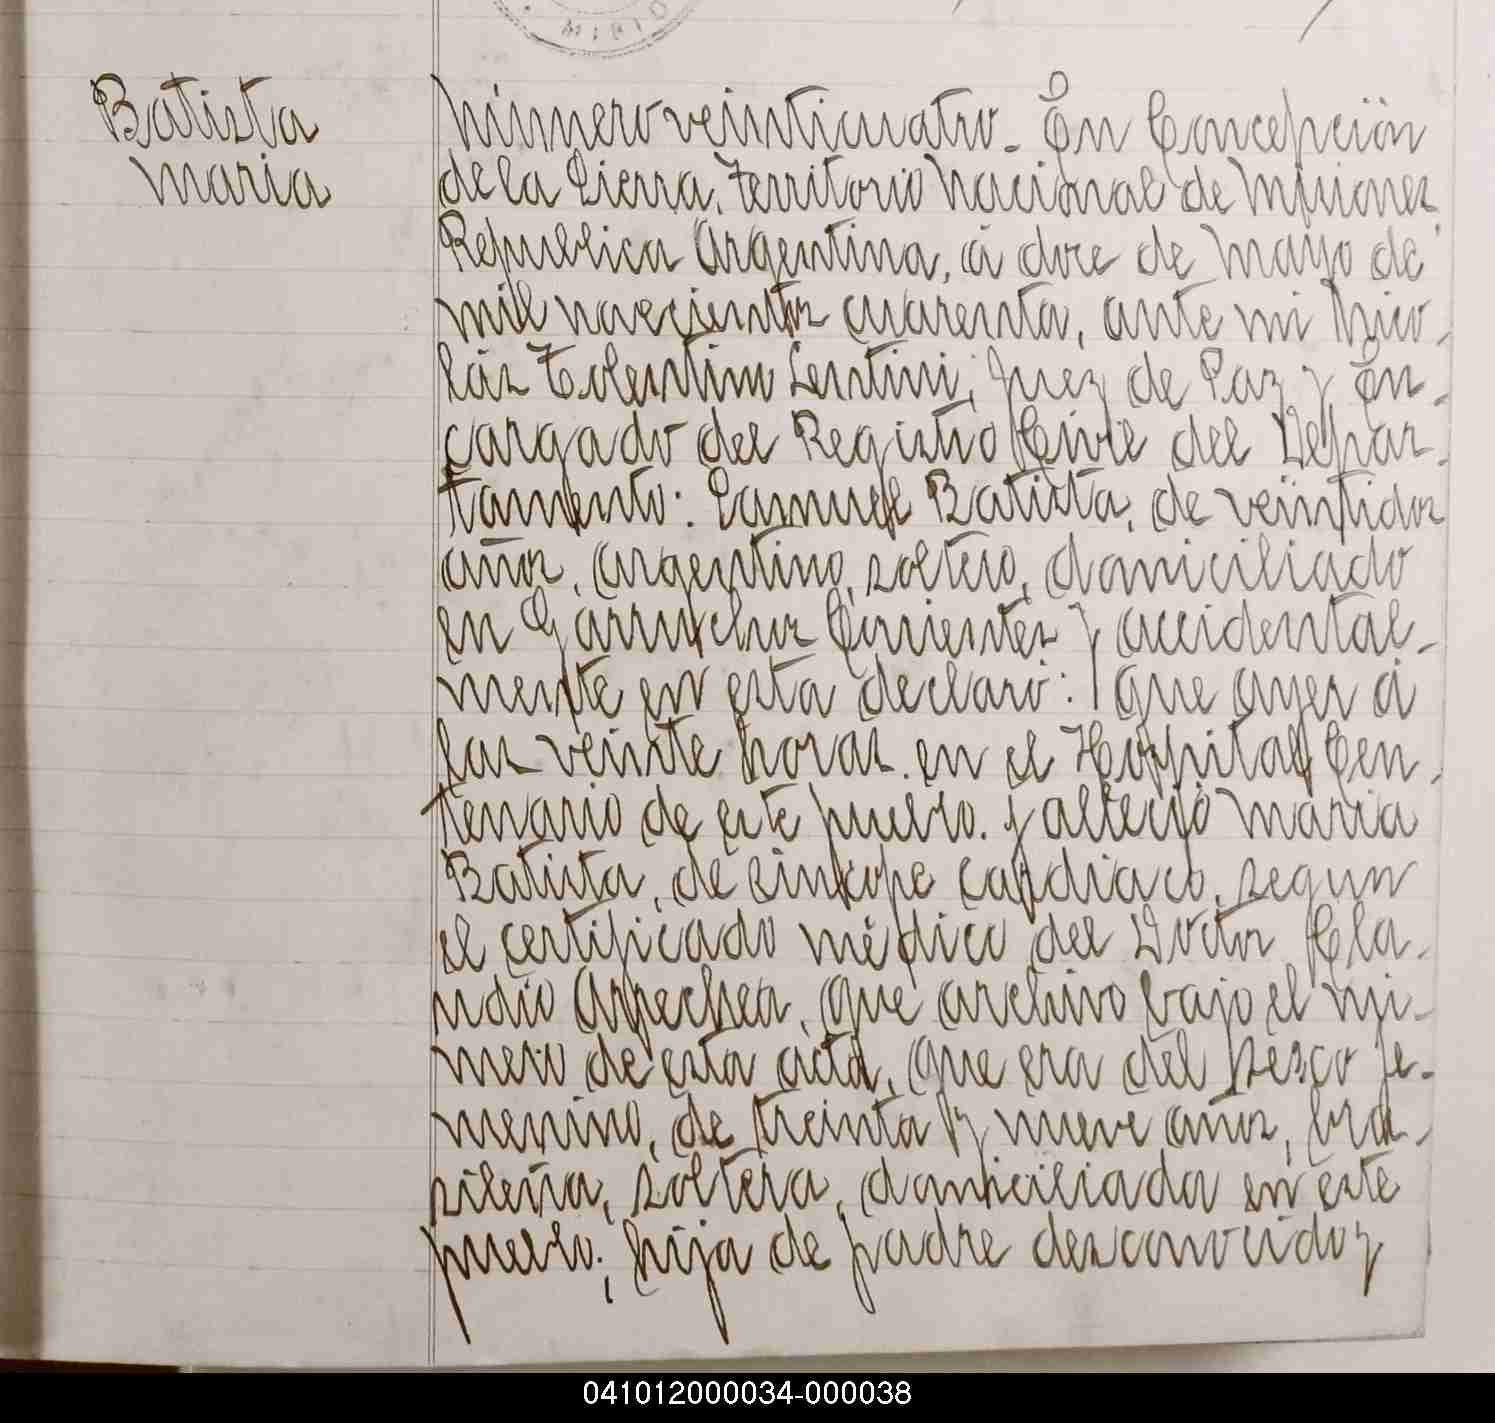 Batista
Maria
Número veinticuatro. En Concepción
de la Sierra, Territorio Nacional de Misiones
República Argentina, á doce de Mayo de
mil novecientos cuarenta, ante mi Nico-
lás Tolentino Sentini, Juez de Paz y En-
cargado del Registro Civil del Depar-
tamento: Samuel Batista, de veintidos
años, argentino, soltero, domiciliado
en Garruchos Corrientes y accidental-
mente en esta declaró: Que ayer á
las veinte horas en el Hospital Cen-
tenario de este pueblo. falleció Maria
Batista, de sinkope cardiaco, segun
el certificado médico del Doctor Cla-
udio Arrechea, que archivo bajo el nú-
mero de esta acta, que era del sesco fe-
menino, de treinta y nueve años, bra-
sileña, soltera, domiciliada en este
pueblo; hija de padre desconocido y
041012000034-000038